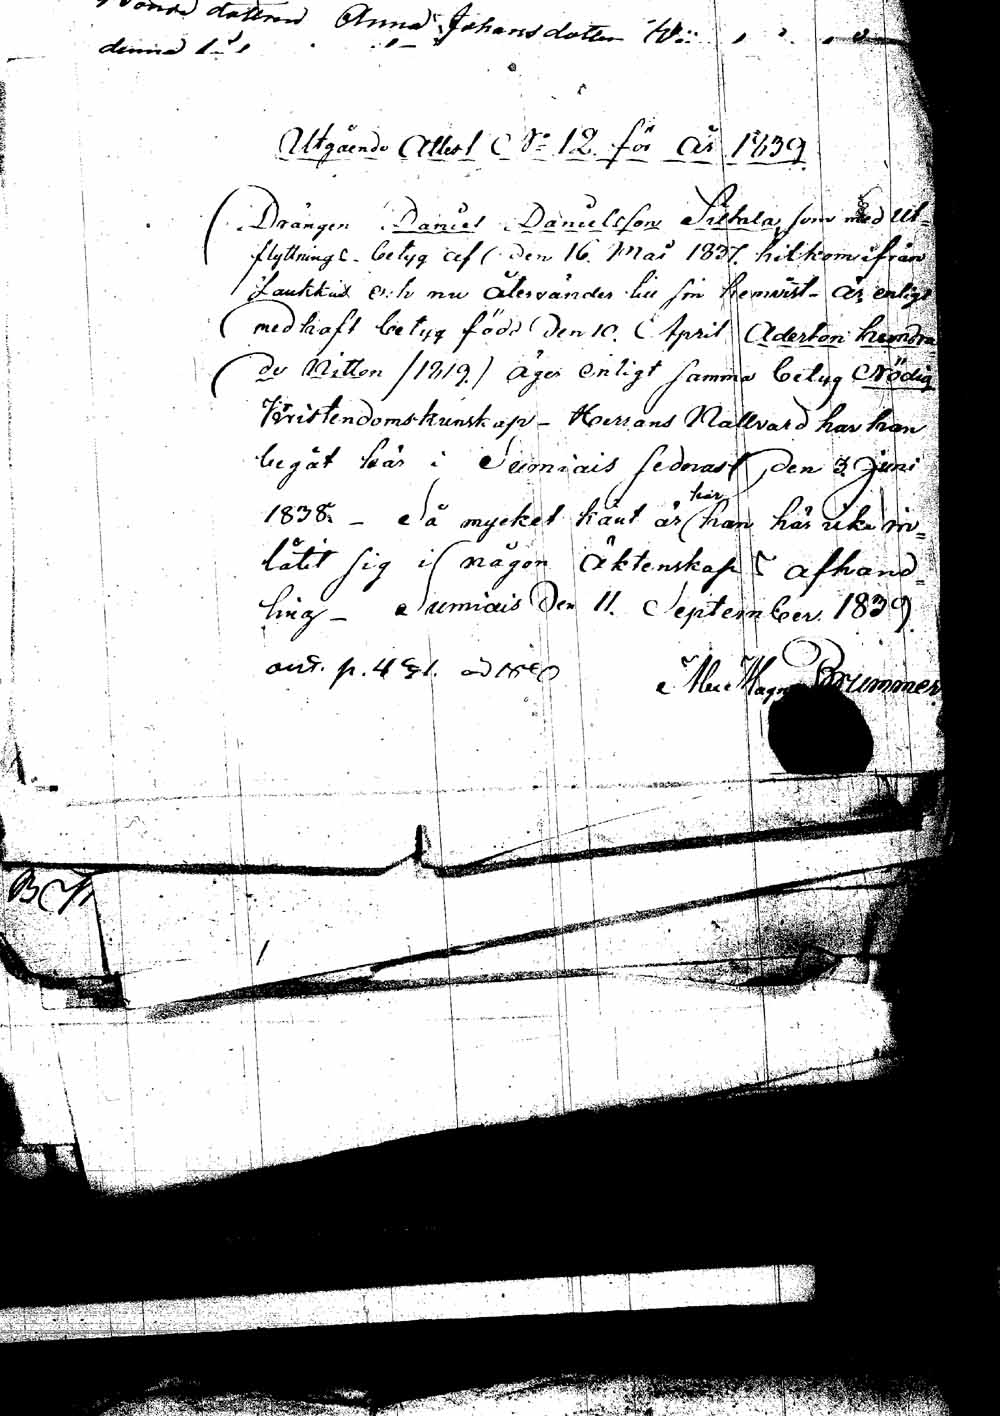 dottren Anna Johansdotter
denna
Utgående Attest No 12 för år 1839
Drängen Daniel Danielsson Siltala, som med Ut-
flyttnings betyg af den 16. Maj 1837. hitkom ifrån
Laukkas och nu återvänder till sin hemvist är enligt
medhaft betyg född den 10. April Aderton hundra
de Nitton /1819./ äger enligt samma betyg Nödig
Kristendomskunskap - Herrans Nattvard har han
begåt här i Sumiais sednast den 3. Juni
1838. - Så mycket känt är har han här icke in-
låtit sig i någon Äktenskaps afhand-
ling - Sumiais den 11. September 1839.
ant. p. 491.
Magn Brummer